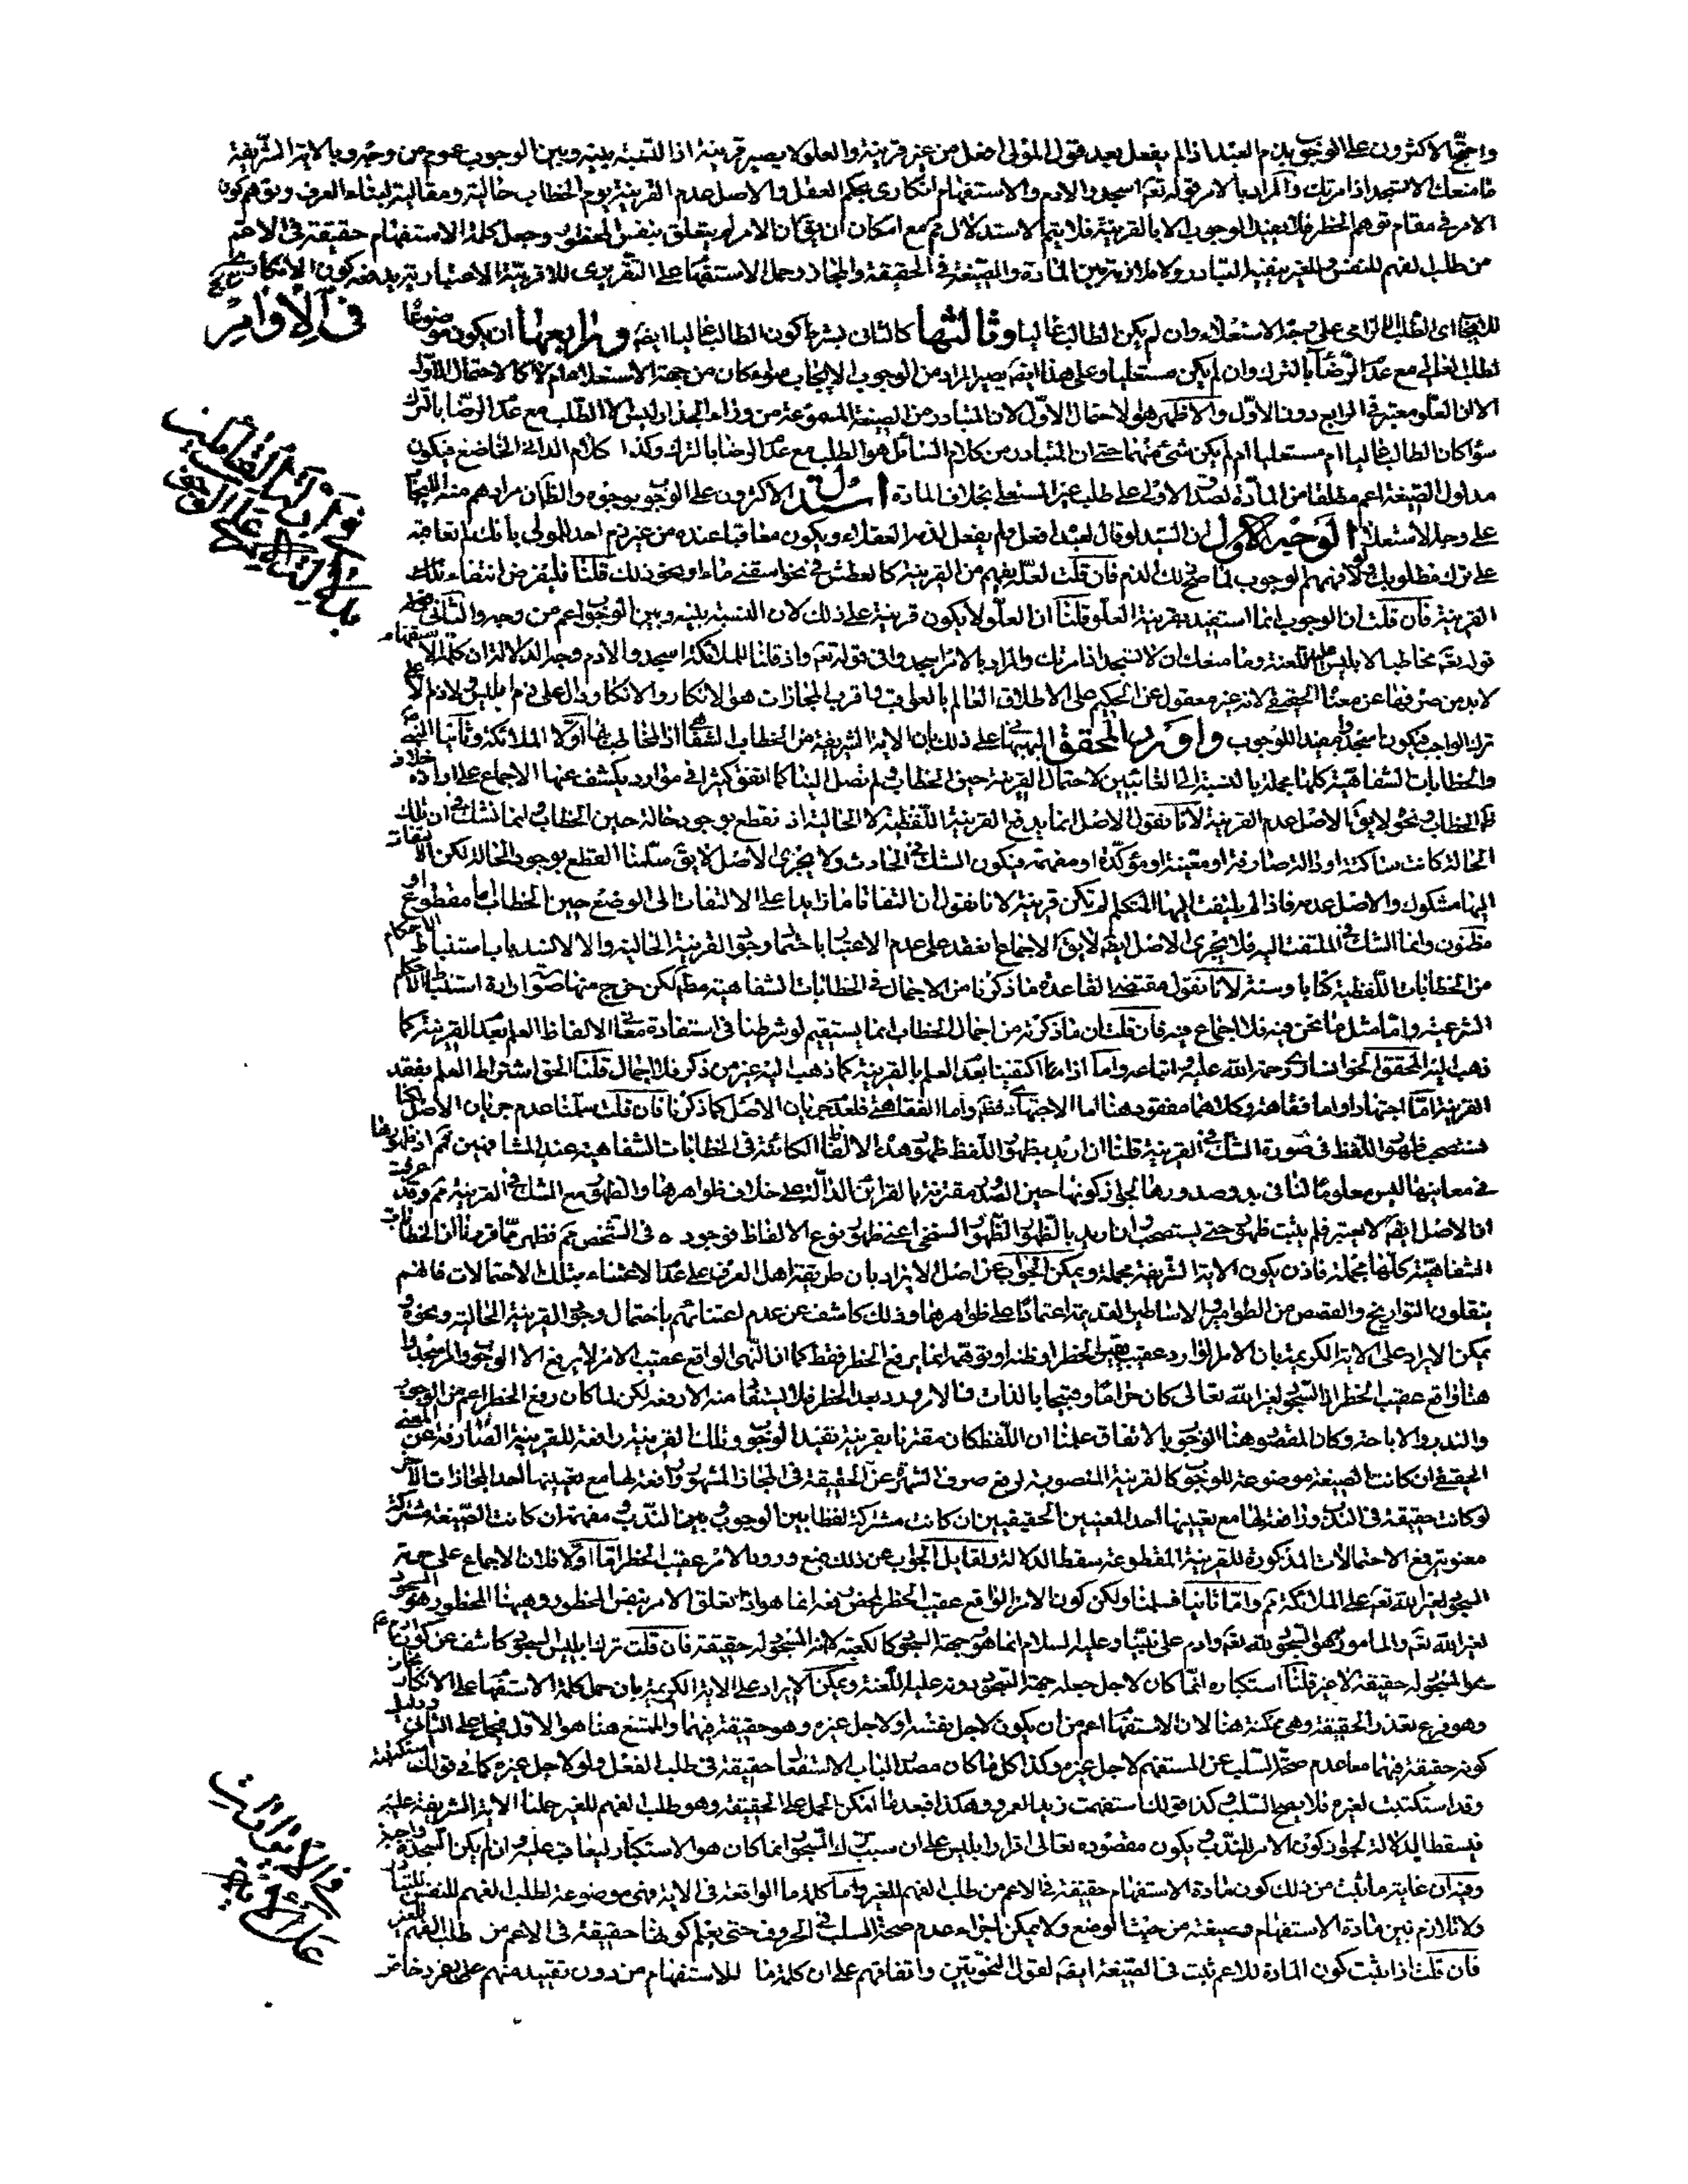 واحتج الاكثرون على الوجوب بذم العبد اذا لم يفعل بعد قول المولى افعل من غير قرينة والعلو لا يصير قرينة اذ النسبة بينه وبين الوجوب عموم من وجه وبالاية الشريفة
ما منعك الا تسجد اذ امرتك والمراد بالامر قوله تعم اسجدوا لادم والاستفهام انكاري بحكم العقل والاصل عدم القرينة يوم الخطاب حالية ومقالية لبناء العرف وتوهم كون
الامر في مقام توهم الحظر فلا يفيد الوجوب الا بالقرينة فلا يتم الاستدلال مع امكان ان يق ان الامر لم يتعلق بنفس المحظور وجعل كلمة الاستفهام حقيقة في الاعم
من طلب الفهم للنفس وللغير ينفيه التبادر ولا ملازمة بين المادة والصيغة في الحقيقة والمجاز وحمل الاستفهام على التقريري للاقرينة الاختبارية يدفعه كون الانكار
في الاوامر
للايجاب اى الطلب الالزامى على جهة الاستعلاء وان لم يكن الطالب عاليا وثالثها كالثانى بشرط كون الطالب عاليا ايضا ورابعها ان يكون موضوعا
لطلب العالى مع عدم الرضا بالترك وان لم يكن مستعليا وعلى هذا ايضا يصير المراد من الوجوب الايجاب سواء كان من جهة الاستعلاء ام لا كالاحتمال الاول
الا ان العلو معتبر فى الرابع دون الاول والاظهر هو الاحتمال الاول لان المتبادر من الصيغة المسموعة من وراء الجدار ليس الا الطلب مع عدم الرضا بالترك
سواء كان الطالب عاليا ام مستعليا ام لم يكن شئ منهما حتى ان المتبادر من كلام السائل هو الطلب مع عدم الرضا بالترك وكذا كلام الدانى الخاضع فيكون
مدلول الصيغة اعم مطلقا من المادة لصدق الاولى على طلب غير المستعلى بخلاف المادة استدل الاكثرون على الوجوب بوجوه والظاهر ان مرادهم منه الايجاب
على وجه الاستعلاء الوجه الاول ان السيد لو قال لعبده افعل فلم يفعل لذمه العقلاء ويكون معاقبا عنده من غير ذم احد للمولى بانك لم تعاقبه
على ترك مطلوبك فلولا فهمهم الوجوب لما صح ذلك الذم فان قلت لعله يفهم من القرينة كالعطش فى نحو اسقنى ماء او نحو ذلك قلنا فليفرض انتفاء تلك
القرينة فان قلت ان الوجوب انما استفيد بقرينة العلو قلنا ان العلو لا يكون قرينة على ذلك لان النسبة بينه وبين الوجوب اعم من وجه والثانى
قوله تعم مخاطبا لابليس عليه اللعنة وما منعك ان لا تسجد اذ امرتك والمراد بالامر اسجدوا فى قوله تعم واذ قلنا للملائكة اسجدوا لادم وجه الدلالة ان كلمة الاستفهام
لا بد من صرفها عن معناه الحقيقى لانه غير معقول عن الحكيم على الاطلاق العالم بالعواقب واقرب المجازات هو الانكار والانكار دال على ذم ابليس ولا ذم الا على
ترك الواجب فيكون اسجدوا مفيدا للوجوب واورد المحقق البهبهانى على ذلك بان الاية الشريفة من الخطاب الشفاهى
والخطابات الشفاهية كلها مجملة بالنسبة الى الغائبين لاحتمال القرينة حين الخطاب ولم تصل الينا كما اتفق كثيرا فى موارد يكشف عنها الاجماع على ارادة خلاف
ظاهر الخطاب ونحوه لا يق الاصل عدم القرينة لانا نقول الاصل انما يدفع القرينة اللفظية لا الحالية اذ نقطع بوجود حالة حين الخطاب وانما نشك فى ان تلك
الحالة كانت ساكتة او دالة صارفة او معينة او مؤكدة او مفهمة فيكون الشك فى الحادث ولا يجرى الاصل لا يق سلمنا القطع بوجود الحالة لكن الالتفات
اليها مشكوك والاصل عدمه فاذا لم يلتفت اليها المتكلم لم تكن قرينة لانا نقول ان التفاتا ما زايدا على الالتفات الى الوضع حين الخطاب اما مقطوع او
مظنون وانما الشك فى الملتفت اليه فلا يجرى الاصل ايضا لا يق الاجماع انعقد على عدم الاعتناء باحتمال وجود القرينة الحالية والا لانسد باب استنباط الاحكام
من الخطابات اللفظية كتابا وسنة لانا نقول مقتضى القاعدة ما ذكرنا من الاجمال فى الخطابات الشفاهية مطلقا لكن خرج منها صورة ارادة استنباط الاحكام
الشرعية واما مثل ما نحن فيه فلا اجماع فيه فان قلت ان ما ذكرته من اجمال الخطاب انما يستقيم لو شرطنا فى استفادة معانى الالفاظ العلم بعدم القرينة كما
ذهب اليه المحقق الخوانسارى رحمة الله عليه واتباعه واما اذا ما اكتفينا بعدم العلم بالقرينة كما ذهب اليه غيره من ذكر فلا اجمال قلنا الحق اشتراط العلم بفقد
القرينة اما اجتهادا واما فقاهة وكلاهما مفقود هنا اما الاجتهادى فظاهر واما الفقاهى فلعدم جريان الاصل كما ذكرنا فان قلت سلمنا عدم جريان الاصل لكنا
نستصحب ظهور اللفظ فى صورة الشك فى القرينة قلنا ان اريد بظهور اللفظ ظهور هذه الالفاظ الكائنة فى الخطابات الشفاهية عند المشافهين ثم اذ ظهورها
فى معانيها ليس معلوما لنا فى بدو صدورها لجواز كونها حين الصدور مقترنة بالقرائن الدالة على خلاف ظواهرها والظهور مع الشك فى القرينة وقد عرفت
ان الاصل ايضا لا يعتبر فلم يثبت ظهور حتى يستصحب وان اريد بالظهور الظهور السنخى اعنى ظهور نوع الالفاظ فوجوده فى الشخص ثم فظهر مما قررنا ان الخطابات
الشفاهية كلها مجملة فاذن يكون الاية الشريفة مجملة ويمكن الجواب عن اصل الايراد بان طريقة اهل العرف على عدم الاعتناء بتلك الاحتمالات فانهم
ينقلون التواريخ والقصص من الطوامير والاساطير القديمة اعتمادا على ظواهرها وذلك كاشف عن عدم اعتنائهم باحتمال وجود القرينة الحالية ونحوه
يمكن الايراد على الاية الكريمة بان الامر الوارد عقيب الحظر او ظنه او توهمه انما يرفع الحظر فقط كما ان النهى الواقع عقيب الامر لا يرفع الا الوجوب والامر بالسجدة
هنا واقع عقيب الحظر اذ السجود لغير الله تعالى كان حراما وقبيحا بالذات فالامر ورد بعد الحظر فلا يستفاد منه الا رفعه لكن لما كان رفع الحظر اعم من الوجوب
والندب والاباحة وكان المقصود هنا الوجوب بالاتفاق علمنا ان اللفظ كان مقترنا بقرينة تفيد الوجوب وتلك القرينة رافعة للقرينة الصارفة عن المعنى
الحقيقى ان كانت الصيغة موضوعة للوجوب كالقرينة المنصوبة لرفع صرف الشهرة عن الحقيقة فى المجاز المشهور ورافعة لها مع تعيينها احد المجازات الاخر
لو كانت حقيقة فى الندب ورافعة لها مع تعيينها احد المعنيين الحقيقيين ان كانت مشتركة لفظا بين الوجوب وبين الندب ومفهمة ان كانت الصيغة مشتركة
معنوية فمع الاحتمالات المذكورة للقرينة المقطوعة سقط الدلالة ولقايل الجواب عن ذلك بمنع ورود الامر عقيب الحظر اما اولا فلان الاجماع على حرمة
السجود لغير الله تعم على الملائكة ثم واما ثانيا فسلمنا ولكن كون الامر الواقع عقيب الحظر لمحض رفعه انما هو اذا تعلق الامر بنفس المحظور وهيهنا المحظور هو السجود
لغير الله تعم والمامور به هو السجود لله تعم وادم على نبينا وعليه السلام انما هو جهة السجود كالكعبة لا انه المسجود له حقيقة فان قلت ترك ابليس السجود كاشف عن كون ادم
هو المسجود له حقيقة لا غير قلنا استكباره انما كان لاجل جعله جهة السجود دونه عليه اللعنة ويمكن الايراد على الاية الكريمة بان حمل كلمة الاستفهام على الانكار مجاز
وهو فرع تعذر الحقيقة وهى ممكنة هنا لان الاستفهام اعم من ان يكون لاجل نفسه او لاجل غيره وهو حقيقة فيهما والممتنع هنا هو الاول فيحمل على الثانى ودليل
كونه حقيقة فيهما معا عدم صحة السلب عن المستفهم لاجل غيره وكذا كل ما كان مصدرا لباب الاستفعال حقيقة فى طلب الفعل ولو لاجل غيره كما فى قولك استكتبته
وقد استكتبت لغيره فلا يصح السلب وكذا قولنا استفهمت زيدا لعمرو وهكذا فبعد ما امكن الحمل على الحقيقة وهو طلب الفهم للغير حملنا الاية الشريفة عليه
فيسقط الدلالة لجواز كون الامر للندب ويكون مقصوده تعالى اقرار ابليس على ان سبب ترك السجود انما كان هو الاستكبار ليعاقب عليه وان لم يكن السجدة واجبة
وفيه ان غاية ما ثبت من ذلك كون مادة الاستفهام حقيقة فى الاعم من طلب الفهم للغير واما كلمة ما الواقعة فى الاية فهى موضوعة لطلب الفهم للنفس للتبادر
ولا تلازم بين مادة الاستفهام وصيغته من حيث الوضع ولا يمكن اجراء عدم صحة السلب فى الحروف حتى يعلم كونها حقيقة فى الاعم من طلب الفهم للغير
فان قلت اذا ثبت كون المادة للاعم ثبت فى الصيغة ايضا لقول النحويين واتفاقهم على ان كلمة ما للاستفهام من دون تقييد منهم على بفرد خاص